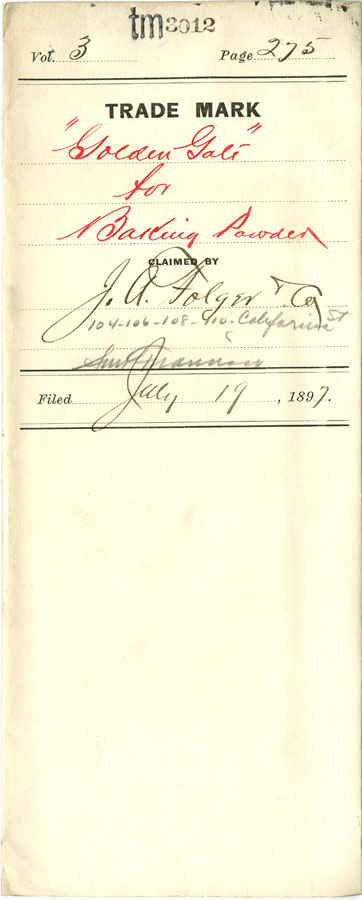 tm 3012
Vol. 3 Page 275
TRADE MARK
"Golden Gate"
for
Baking Powder
CLAIMED BY
J. A. Folger & Co
104-106-108-110-California St
San Francisco
Filed July 19, 1897.